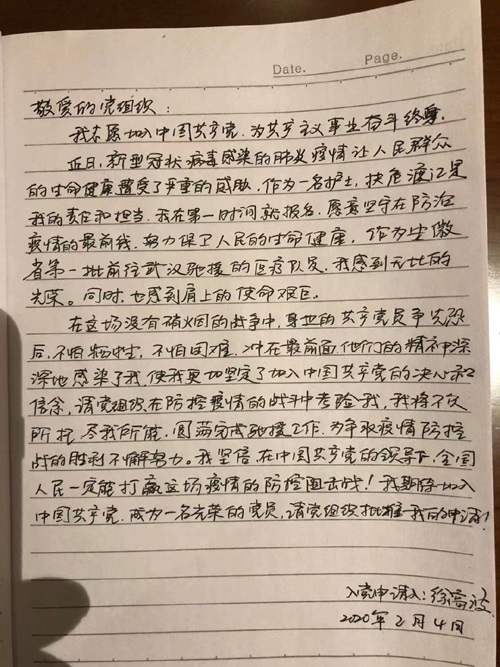 Date.   Page.
敬爱的党组织：
我志愿加入中国共产党，为共产主义事业奋斗终身。
近日，新型冠状病毒感染的肺炎疫情让人民群众
的生命健康遭受了严重的威胁，作为一名护士，扶危渡江是
我的责任和担当，我在第一时间就报名，愿意坚守在防治
疫情的最前线，努力保卫人民的生命健康，作为安徽
省第一批前往武汉驰援的医疗队员，我感到无比的
光荣。同时，也感到肩上的使命艰巨。
在这场没有硝烟的战争中，身边的共产党员争先恐
后，不怕牺牲，不怕困难，冲在最前面，他们的精神深
深地感染了我，使我更加坚定了加入中国共产党的决心和
信念，请党组织在防控疫情的战斗中考验我，我将不负
所托，尽我所能，圆满完成驰援工作，为争取疫情防控
战的胜利不懈努力。我坚信，在中国共产党的领导下，全国
人民一定能打赢这场疫情的防控阻击战！我期盼加入
中国共产党，成为一名光荣的党员，请党组织批准我的申请！
入党申请人：徐
2020年2月4日